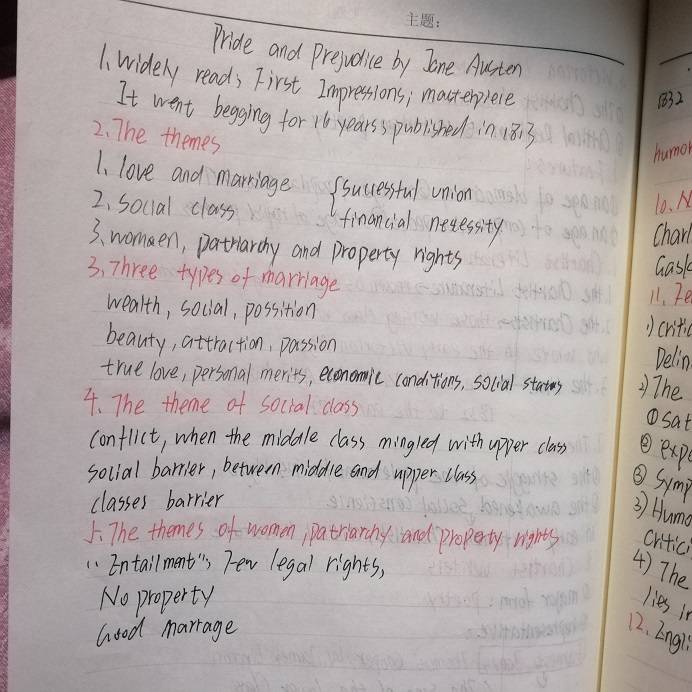 主题:
Pride and Prejudice by Jane Austen
1. widely read; First Impressions; masterpiece
It went begging for 16 years; published in 1813
2. The themes
1. love and marriage {successful union
2. social class {financial necessity
3. women, patriarchy and property rights
3. Three types of marriage
wealth, social, possition
beauty, attraction, passion
true love, personal merits, economic conditions, social status
4. The theme of social class
conflict, when the middle class mingled with upper class
social barrier, between middle and upper class
classes barrier
5. The themes of women, patriarchy and property rights
"Entailment"; Few legal rights,
No property
Good marrage
1832
humor
10. N
Charl
Gask
11. Fe
1) critic
Delin
2) The
① sat
② expe
③ Symp
3) Humo
Critici
4) The
lies in
12. Engli